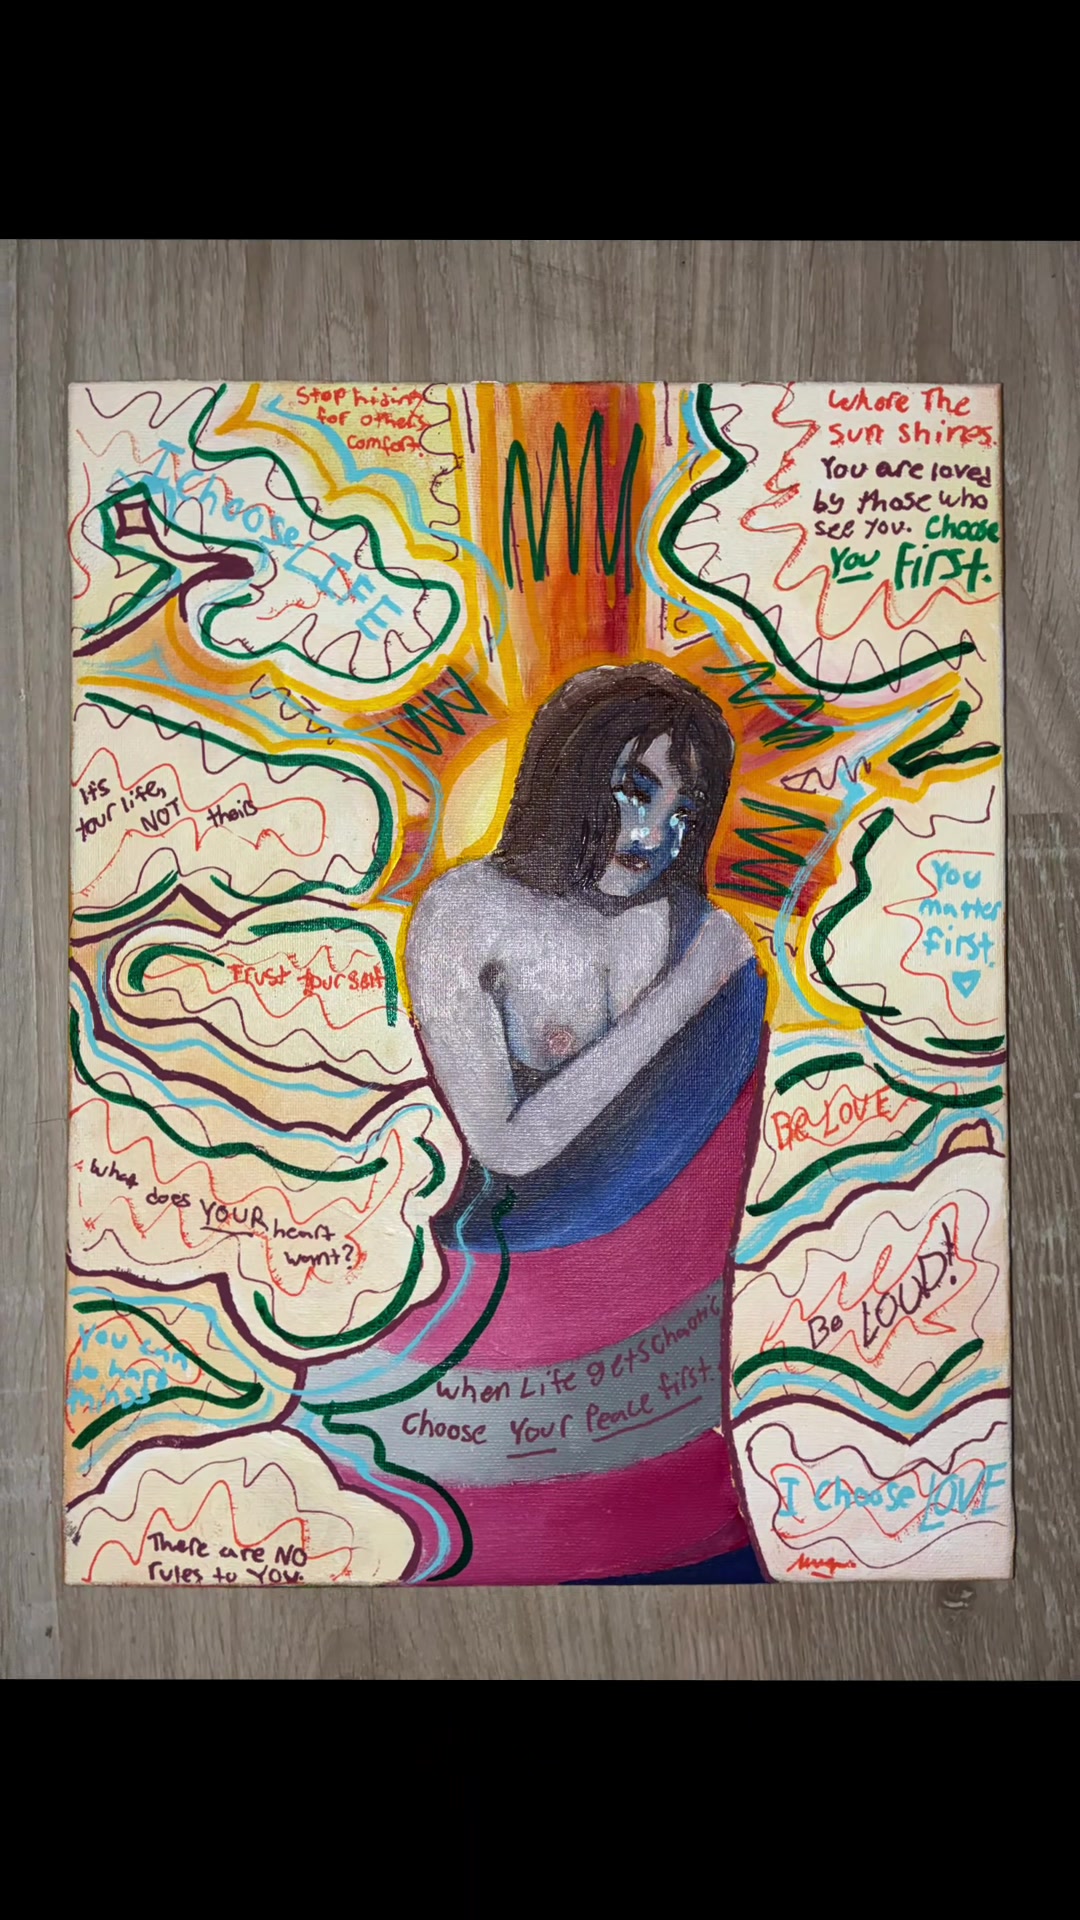 Stop hiding
for others
comfort!
I choose LIFE
Where The
sun shines.
You are loved
by those who
see you. Choose
You First.
It's
your life,
NOT theirs
You
matter
first.
Trust yourself
Be LOVE
What does YOUR heart
want?
Be LOUD!
You can
do hard
things
When Life gets chaotic
Choose Your Peace first.
I choose LOVE
There are NO
rules to YOU.